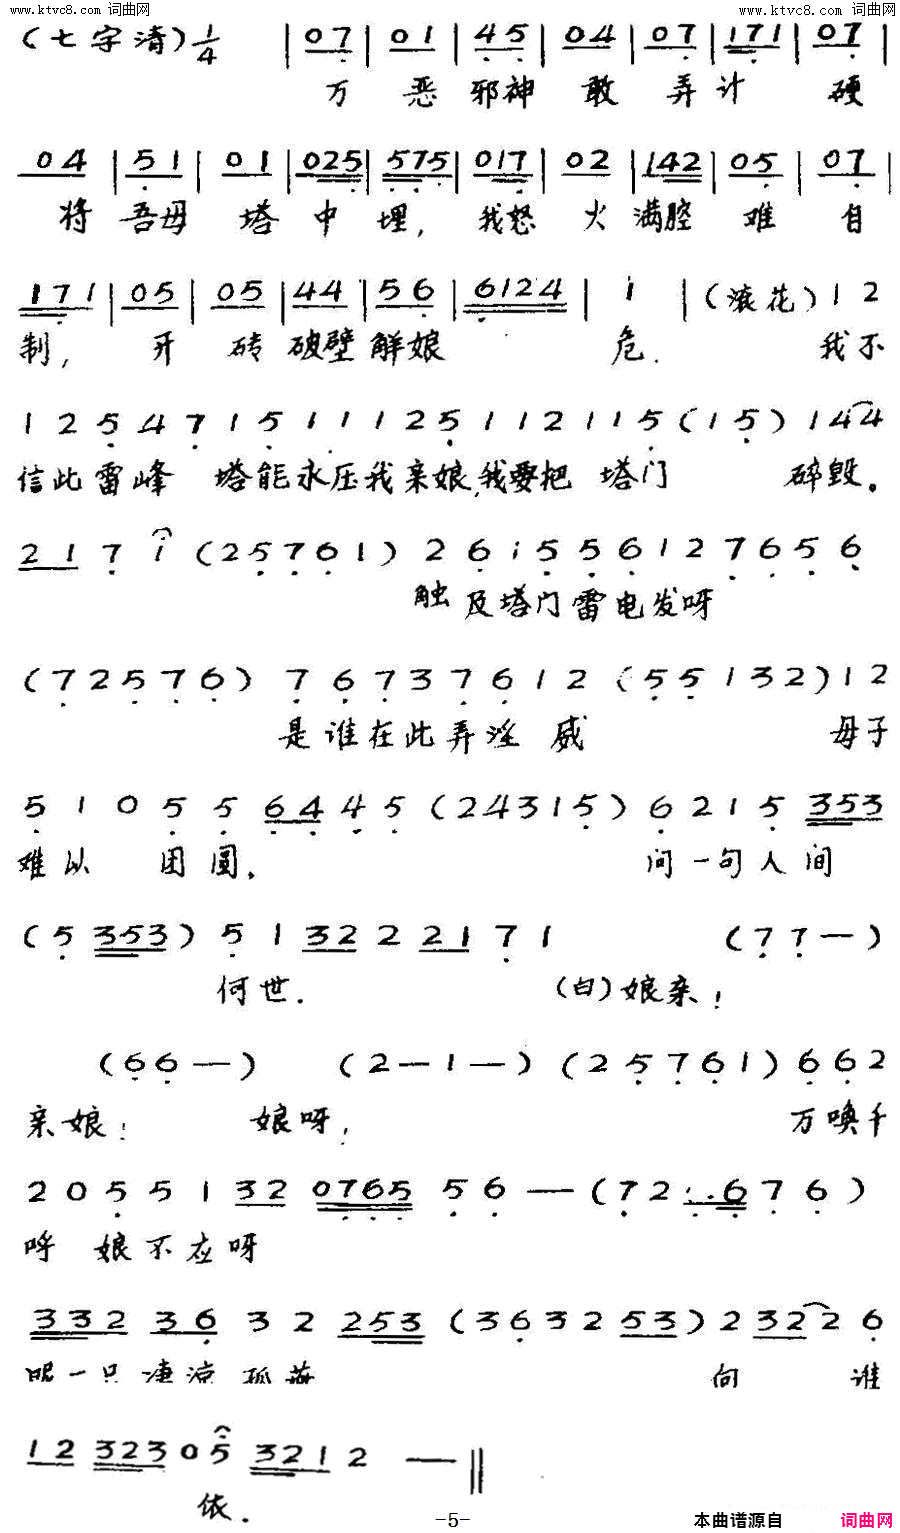 www.ktvc8.com 词曲网 www.ktvc8.com 词曲网
(七字清) 1/4 | 07 | 01 | 45 | 04 | 07 | 171 | 07 |
万 恶 邪神 敢 弄 计 硬
04 | 51 | 01 | 025 | 575 | 017 | 02 | 142 | 05 | 07 |
将 吾母 塔 中 埋, 我怒 火 满腔 难 自
171 | 05 | 05 | 44 | 56 | 6124 | 1 | (滚花) 1 2
制, 开 砖 破壁 解娘 危. 我不
1 2 5 4 7 1 5 1 1 1 2 5 1 1 2 1 1 5 (1 5) 1 4 4
信此雷峰 塔能永压我亲娘,我要把 塔门 碎毁。
2 1 7 1 (2 5 7 6 1) 2 6 1 5 5 6 1 2 7 6 5 6
触及塔门雷电发呀
(7 2 5 7 6) 7 6 7 3 7 6 1 2 (5 5 1 3 2) 1 2
是谁在此弄淫 威 母子
5 1 0 5 5 6 4 4 5 (2 4 3 1 5) 6 2 1 5 353
难以 团圆. 问一句人间
(5 353) 5 1 32 2 21 7 1 (7 7 —)
何世. (白)娘亲!
(6 6 —) (2 — 1 —) (2 5 7 6 1) 6 6 2
亲娘! 娘呀! 万唤千
2 0 5 5 1 32 0765 5 6 — (7 2 · · 6 7 6)
呼 娘不应呀
332 36 3 2 253 (3 6 3 2 53) 2 32 2 6
一只凄凉孤 向 谁
12 323 0 5 3212 —
依.
-5- 本曲谱源自 词曲网